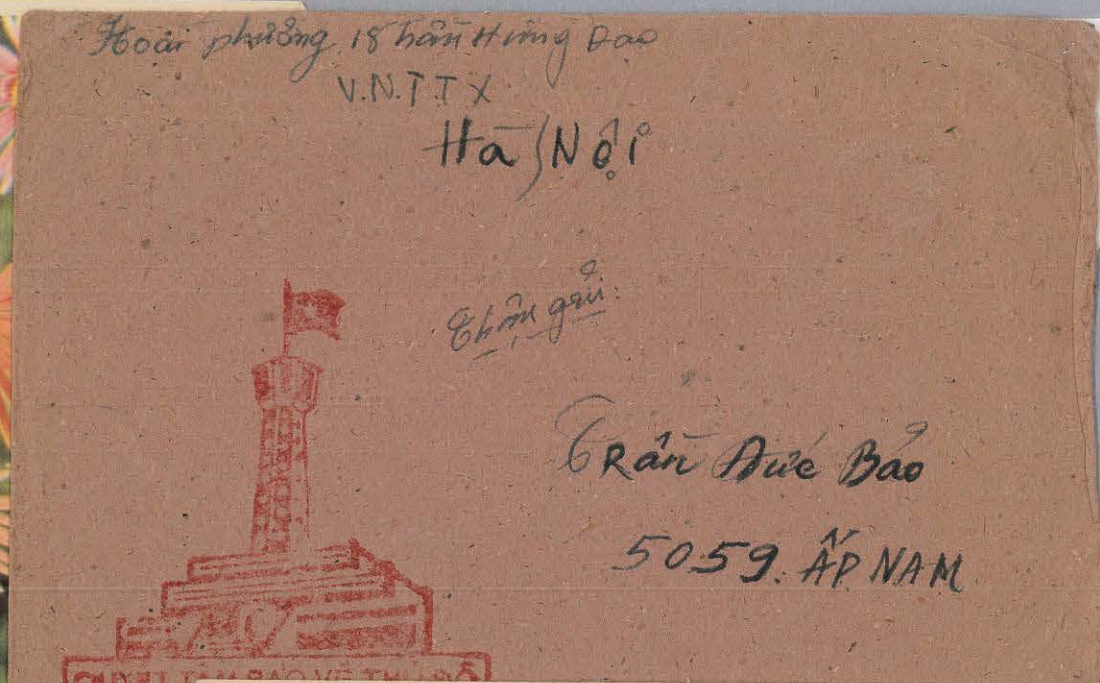 Hoài phương 18 Trần Hưng Đạo
V.N.T.T.X
Hà Nội
Thân gửi:
Trần Đức Bảo
5059. ẤP. NAM
QUYẾT TÂM BẢO VỆ THỦ ĐÔ